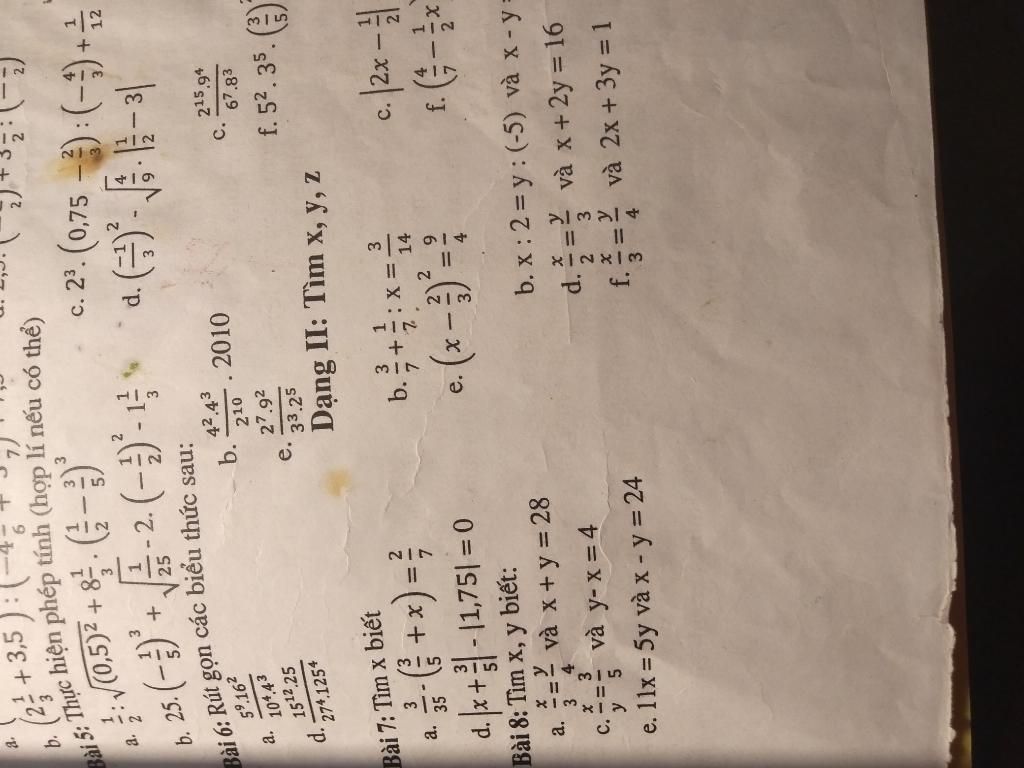 a. (
b. (2 1/3 + 3,5) : (-4 1/6 + 3 1/7) +
Bài 5: Thực hiện phép tính (hợp lí nếu có thể)
a. 1/2 : √(0,5)² + 8 1/3 . (1/2 - 3/5)³ c. 2³ . (0,75 - 2/3) : (-4/3) + 1/12
b. 25.(-1/5)³ + √(1/25) - 2. (-1/2)² - 1 1/3 d. (-1/3)² - √(4/9) . |1/2 - 3|
Bài 6: Rút gọn các biểu thức sau:
a. 5⁹.16²/10⁴.4³ b. 4².4³/2¹⁰ . 2010 c. 2¹⁵.9⁴/6⁷.8³
d. 15¹².25/27⁴.125⁴ e. 2⁷.9²/3³.2⁵ f. 5² . 3⁵ . (3/5)
Dạng II: Tìm x, y, z
Bài 7: Tìm x biết
a. 3/35 - (3/5 + x) = 2/7 b. 3/7 + 1/7 : x = 3/14 c. |2x - 1/2|
d. |x + 3/5| - |1,75| = 0 e. (x - 2/3)² = 9/4 f. (4/7 - 1/2 x)
Bài 8: Tìm x, y biết:
a. x/3 = y/4 và x + y = 28 b. x : 2 = y : (-5) và x - y
c. x/y = 3/5 và y- x = 4 d. x/2 = y/3 và x + 2y = 16
e. 11x = 5y và x - y = 24 f. x/3 = y/4 và 2x + 3y = 1